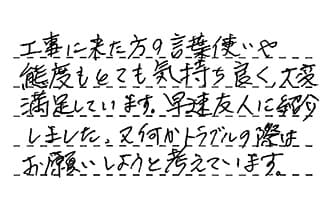 工事に来た方の言葉使いや
態度もとても気持ち良く、大変
満足しています。早速友人に紹介
しました。又何かトラブルの際は
お願いしようと考えています。